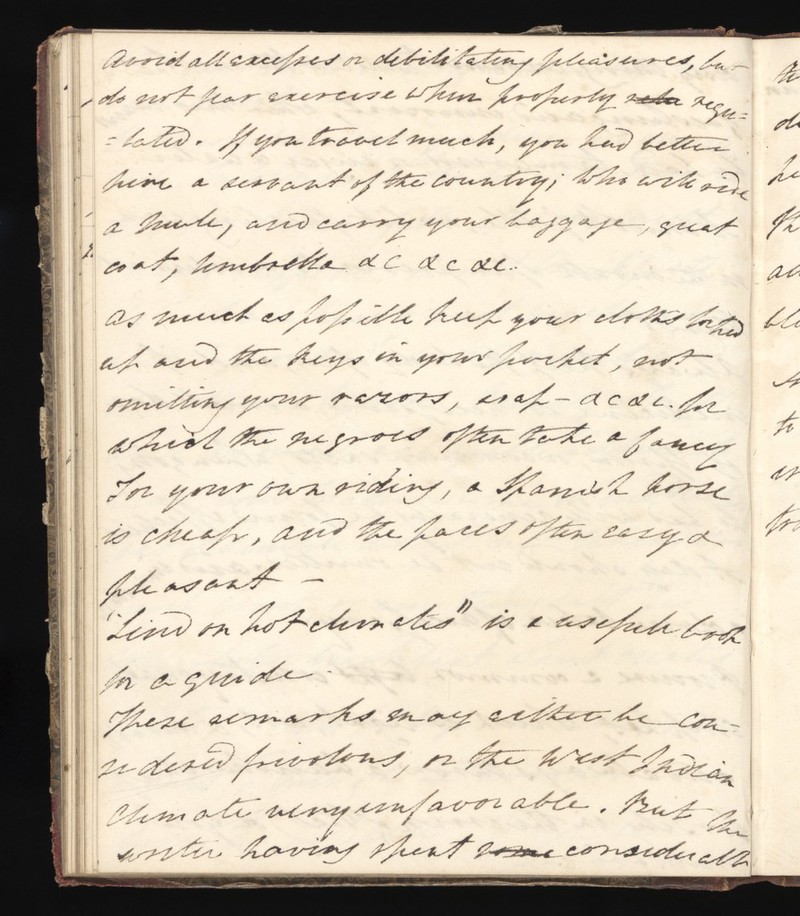 Avoid all excesses or debilitating pleasures, but
do not fear exercise when properly regu=
=lated. If you travel much, you had better
hire a servant of the country; who will ride
a mule, and carry your baggage, great
coat, umbrella &c &c &c.
as much as possible keep your cloths locked
up and the keys in your pocket, not
omitting your razors, soap - &c &c. for
which the negroes often take a fancy
For your own riding, a Spanish horse
is cheap, and the paces often easy &
pleasant -
"Lind on hot climates" is a usefull book
for a guide.
These remarks may either be con-
sidered frivolous, or the West Indian
Climate very unfavorable. But the
writer having spent some considerable